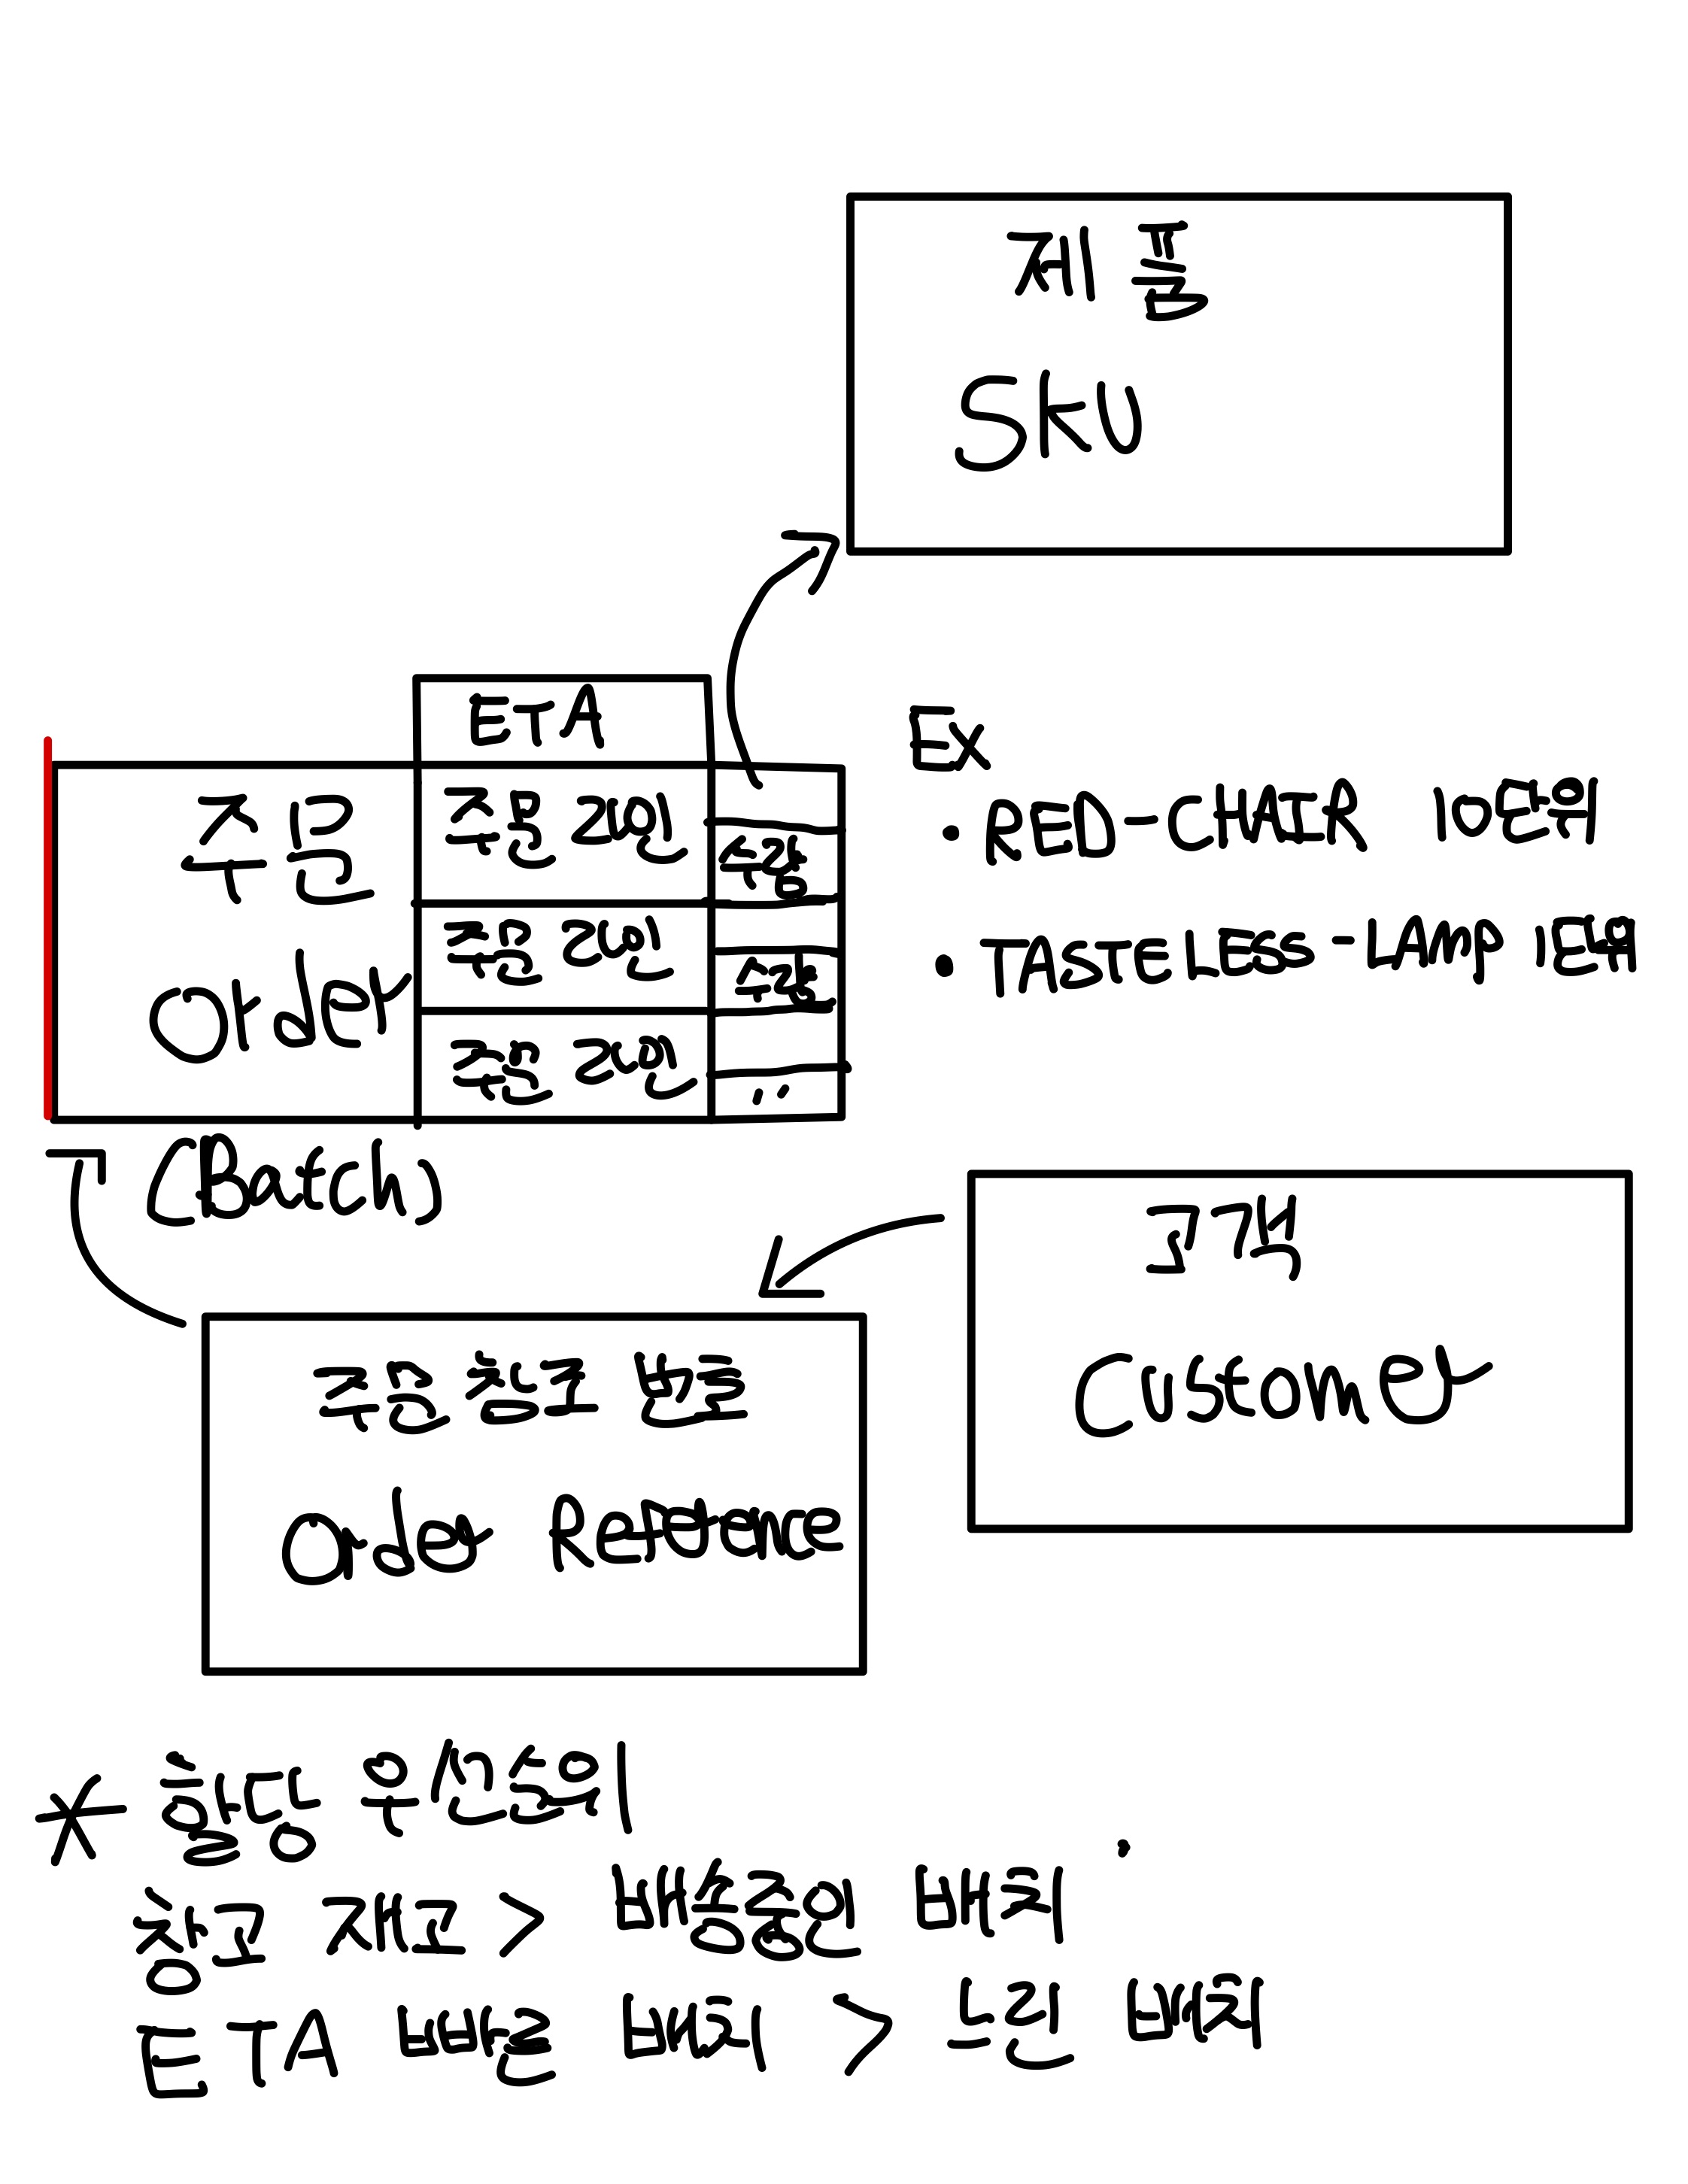 제품
SKU
ETA
주문
Order
주문 라인
수량
주문 라인
수량
주문 라인
..
(Batch)
Ex
· RED-CHAIR 10단위
· TASTELESS-LAMP 1단위
고객
Customer
주문 참조 번호
Order Reference
* 할당 우선순위
창고 재고 > 배송중인 배치
ETA 빠른 배치 > 느린 배치